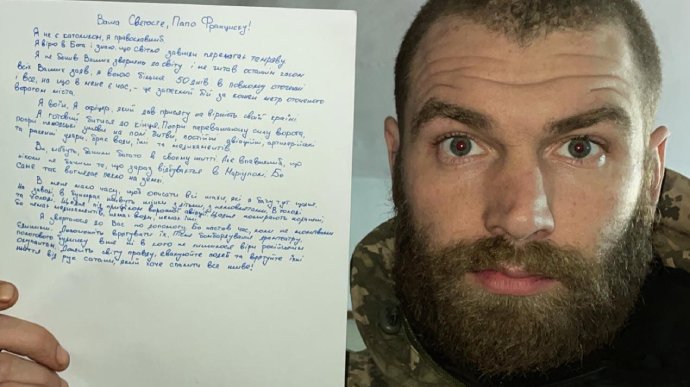 Ваша Святосте, Папо Франциску!
Я не є католиком, я православний.
Я вірю в Бога і знаю, що світло завжди перемагає темряву
Я не бачив Ваших звернень до світу і не читав останнім часом
всіх Ваших заяв, я воюю більше 50 днів в повному оточенні
і все, на що в мене є час, - це запеклий бій за кожен метр оточеного
ворогом міста.
Я воїн. Я офіцер, який дав присягу на вірність своїй країні.
Я готовий битися до кінця. Попри переважаючу силу ворога,
попри нелюдські умови на полі битви, постійні авіаційні, артилерійські
та ракетні удари, брак води, їжі та медикаментів
Ви, мабуть, бачили багато в своєму житті. Але я впевнений, що
ніколи не бачили те, що зараз відбувається в Маріуполі. Бо
саме так виглядає пекло на землі.
В мене мало часу, щоб описати всі жахи, які я бачу тут щодня
На заводі в бункерах живуть жінки з дітьми, з немовлятами. В голоді
та холоді. Щодня під прицілом ворожої авіації. Щодня помирають поранені,
бо немає медикаментів, немає води, немає їжі.
Я звертаюся до Вас по допомогу. Бо настав час, коли не молитвами
єдиними. Допоможіть врятувати їх. Після бомбардування драмтеатру,
ні в кого не лишилося віри російським
окупантам. Донесіть світу правду, евакуюйте людей та врятуйте їхні
життя від рук сатани, який хоче спалити все живе!